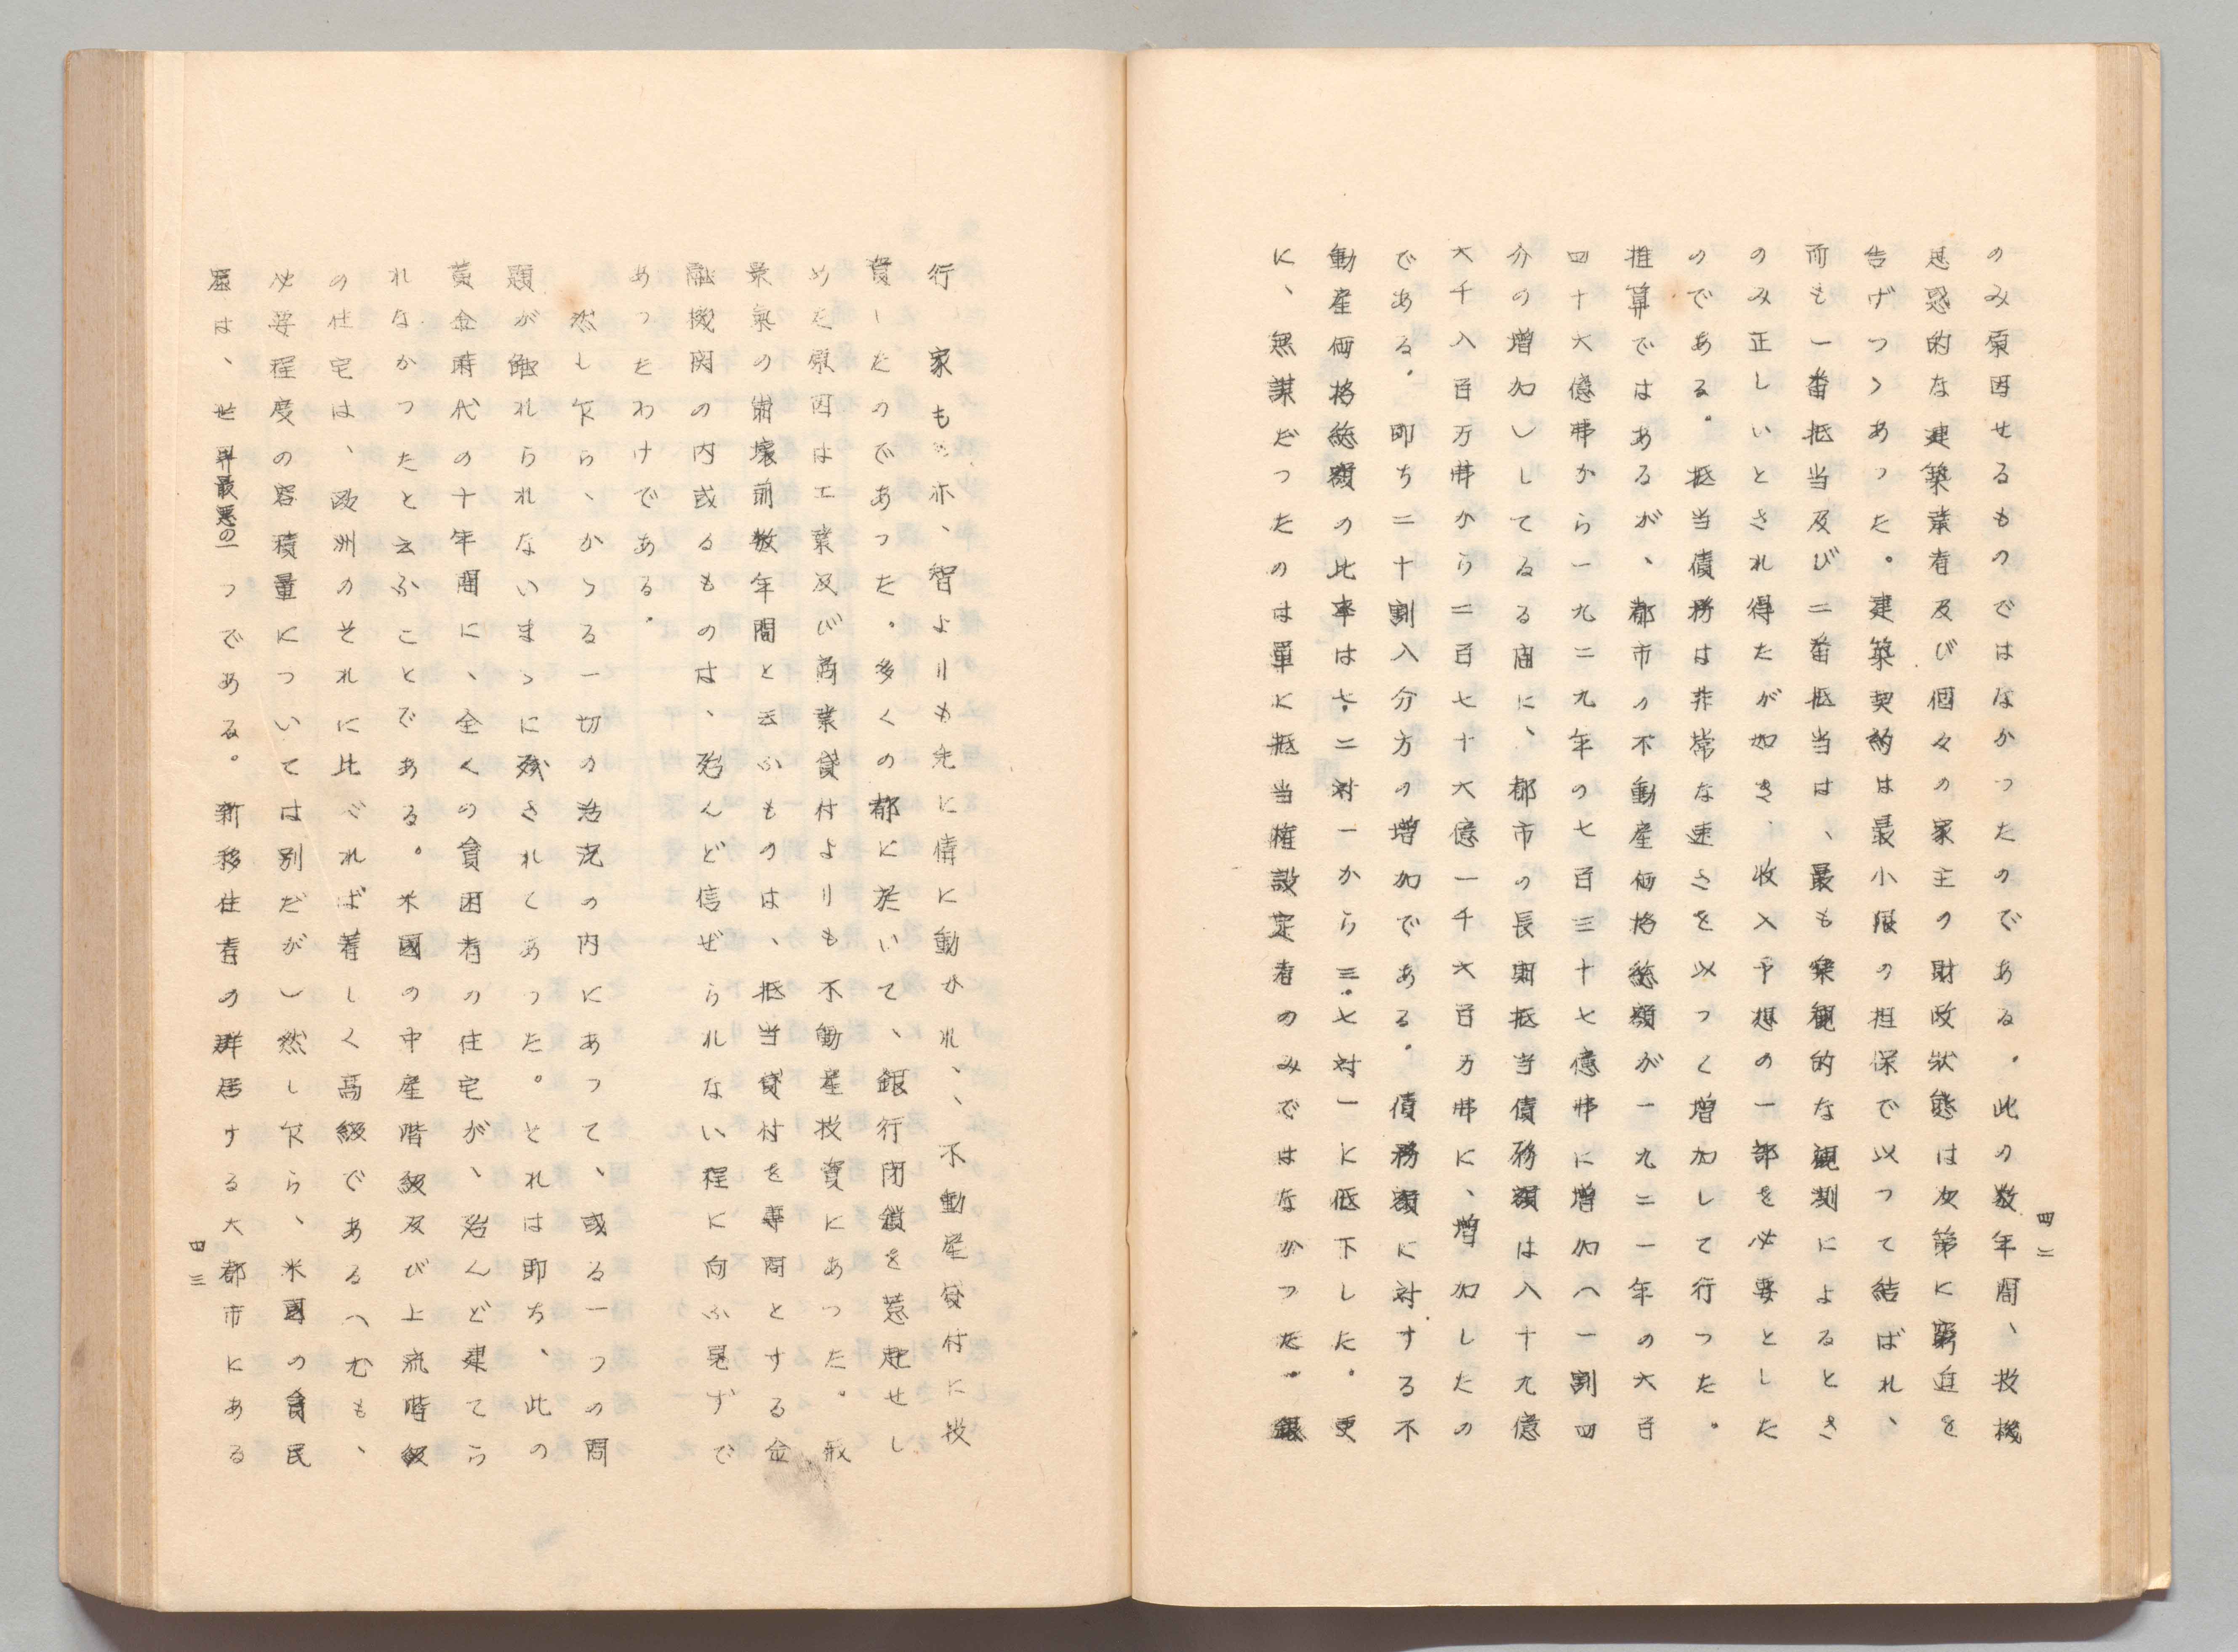 のみ原因せるものではなかつたのである。此の数年間、投機
思惑的な建築業者及び個々の家主の財政狀態は次第に窮迫を
告げつゝあつた。建築契約は最小限の担保で以つて結ばれ、
而も一番抵当及び二番抵当は、最も楽観的な観測によるとき
のみ正しいとされ得たが如き、收入予想の一部を必要とした
のである。抵当債務は非常な速さを以つて増加して行つた。
推算ではあるが、都市の不動産価格総額が一九二一年の六百
四十六億弗から一九二九年の七百三十七億弗に増加(一割四
分の増加)してる間に、都市の長期抵当債務額は八十九億
六千八百万弗から二百七十六億一千六百万弗に、増加したの
である。即ち二十割八分方の増加である。債務額に対する不
動産価格総額の比率は七.二対一から三.七対一に低下した。更
に、無謀だつたのは單に抵当権設定者のみではなかつた。銀
四二
行家も亦、智よりも先に情に動かれ、不動産貸付に投
資したのであつた。多くの都に於いて、銀行閉鎖を惹起せし
めた原因は工業及び商業貸付よりも不動産投資にあつた。殊
景氣の崩壊前数年間と云ふものは、抵当貸付を専問とする金
融機関の内或るものは、殆んど信ぜられない程に向ふ見ずで
あつたわけである。
然し乍ら、かゝる一切の活況の内にあつて、或る一つの問
題が触れられないまゝに残されてあつた。それは即ち、此の
黄金時代の十年間に、全くの貧困者の住宅が、殆んど建てら
れなかつたと云ふことである。米國の中産階級及び上流階級
の住宅は、欧洲のそれに比べれば著しく高級である(尤も、
必要程度の容積量については別だが)然し乍ら、米國の貧民
屈は、世界最悪の一つである。新移住者の群居する大都市にある
四三